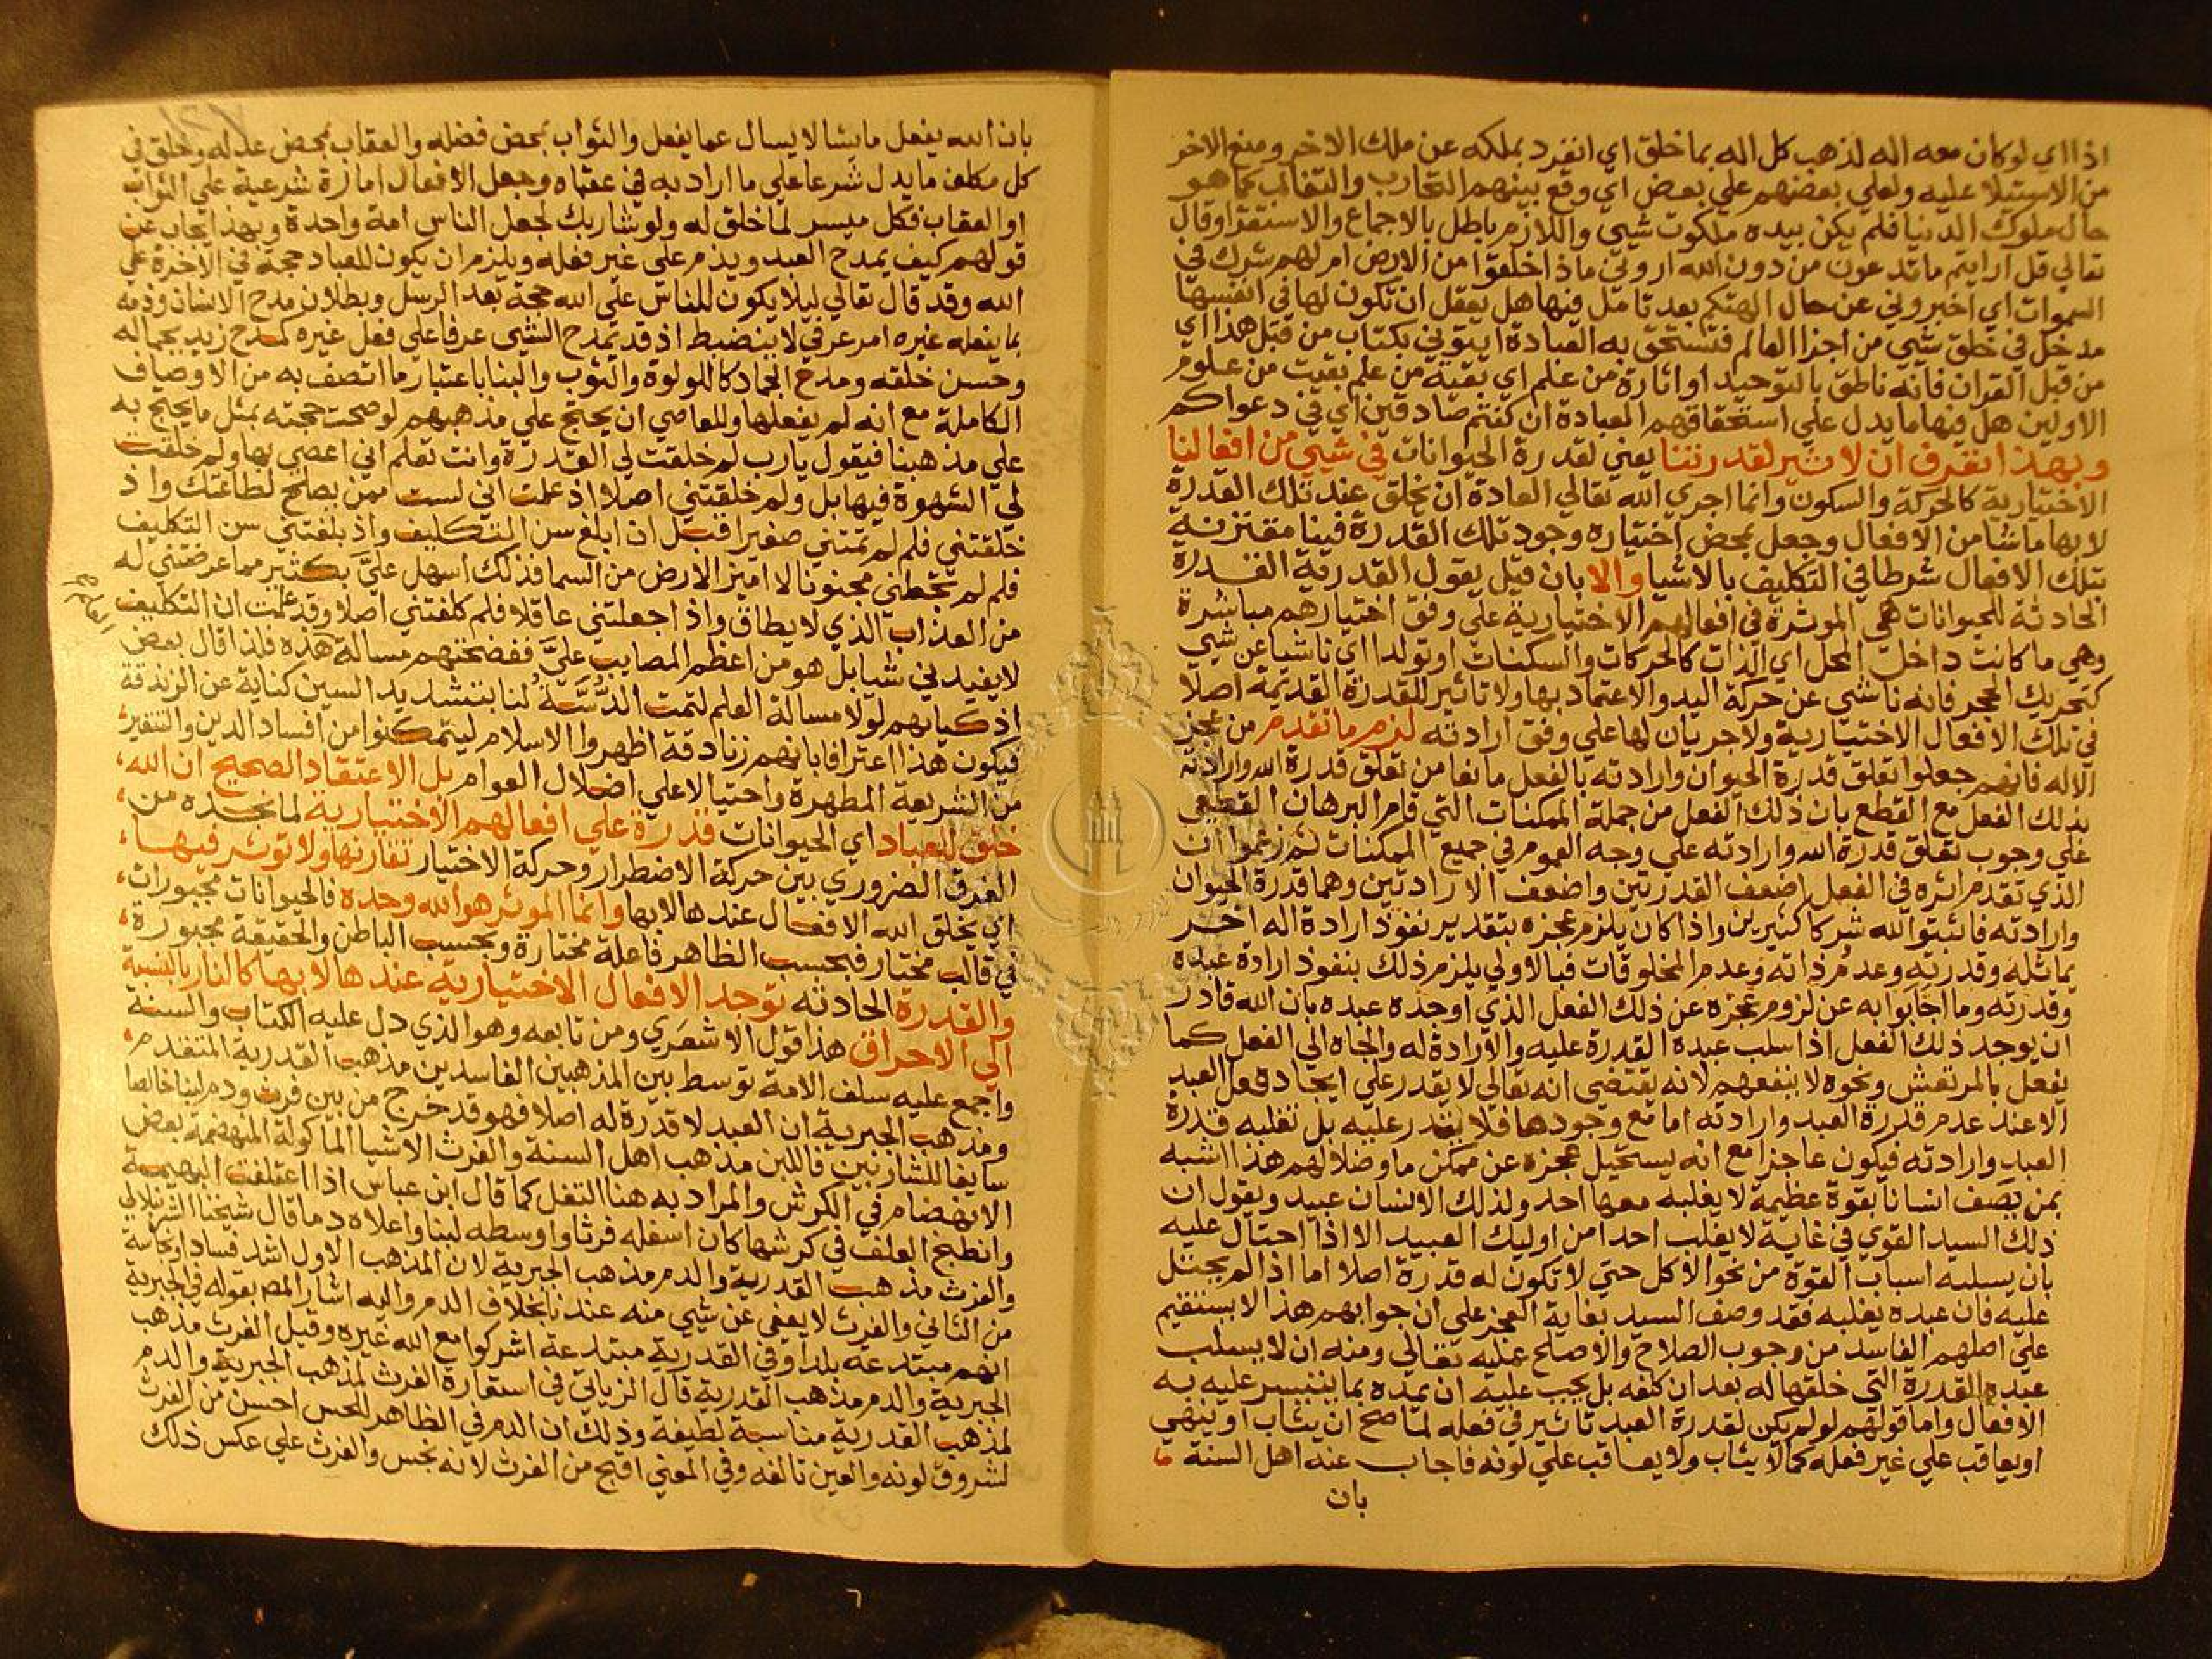 اذا اي لو كان معه اله لذهب كل اله بما خلق اي انفرد بملكه عن ملك الاخر ومنع الاخر
من الاستيلا عليه ولعلي بعضهم علي بعض اي وقع بينهم التحارب والتغالب كما هو
حال ملوك الدنيا فلم يكن بيده ملكوت شيي واللازم باطل بالاجماع والاستقرا وقال
تعالي قل ارايتم ما تدعون من دون الله اروني ماذا خلقوا من الارض ام لهم شرك في
السموات اي اخبروني عن حال الهتكم بعد تامل فيها هل يعقل ان تكون لها في انفسها
مدخل في خلق شيي من اجزا العالم فتستحق به العبادة ايتوني بكتاب من قبل هذا اي
من قبل القران فانه ناطق بالتوحيد او اثارة من علم اي بقية من علم بقيت من علوم
الاولين هل فيها ما يدل علي استحقاقهم العبادة ان كنتم صادقين اي في دعواكم
وبهذا تعرف ان لا تاثير لقدرتنا يعني لقدرة الحيوانات في شيي من افعالنا
الاختيارية كالحركة والسكون وانما اجري الله تعالي العادة ان يخلق عند تلك القدرة
لا بها ما شا من الافعال وجعل بمحض اختياره وجود تلك القدرة فينا مقترنة
بتلك الافعال شرطا في التكليف بالاشيا والا بان قيل يقول القدرية القدرة
الحادثة للحيوانات هي الموثرة في افعالهم الاختيارية علي وفق اختيارهم مباشرة
وهي ما كانت داخل المحل اي الذات كالحركات والسكنات او تولدا اي ناشيا عن شيي
كتحريك الحجر فانه ناشي عن حركة اليد والاعتماد بها ولا تاثير للقدرة القديمة اصلا
في تلك الافعال الاختيارية ولا جريان لها علي وفق ارادته لزم ما تقدم من عجز
الاله فانهم جعلوا تعلق قدرة الحيوان وارادته بالفعل مانعا من تعلق قدرة الله وارادته
بذلك الفعل مع القطع بان ذلك الفعل من جملة الممكنات التي قام البرهان القطعي
علي وجوب تعلق قدرة الله وارادته علي وجه العموم في جميع الممكنات ثم زعموا ان
الذي تقدم اثره في الفعل اضعف القدرتين واضعف الارادتين وهما قدرة الحيوان
وارادته فاثبتوا لله شركا كثيرين واذا كان يلزم عجزه بتقدير نفوذ ارادة اله اخر
يماثله وقدرته وعدم ذاته وعدم المخلوقات فبالاولي يلزم ذلك بنفوذ ارادة عبده
وقدرته وما اجابوا به عن لزوم عجزه عن ذلك الفعل الذي اوجده عبده بان الله قادر
ان يوجد ذلك الفعل اذا سلب عبده القدرة عليه والارادة له والجاه الي الفعل كما
يفعل بالمرتعش ونحوه لا ينفعهم لانه يقتضي انه تعالي لا يقدر علي ايجاد فعل العبد
الا عند عدم قدرة العبد وارادته اما مع وجودها فلا يقدر عليه بل تغلبه قدرة
العبد وارادته فيكون عاجزا مع انه يستحيل عجزه عن ممكن ما وضلالهم هذا اشبه
بمن يصف انسانا بقوة عظيمة لا يغلبه معها احد ولذلك الانسان عبيد ويقول ان
ذلك السيد القوي في غاية لا يغلب احدا من اوليك العبيد الا اذا احتال عليه
بان يسلبه اسباب القوة من نحو الاكل حتي لا تكون له قدرة اصلا اما اذا لم يحتل
عليه فان عبده يغلبه فقد وصف السيد بغاية العجز علي ان جوابهم هذا لا يستقيم
علي اصلهم الفاسد من وجوب الصلاح والاصلح عليه تعالي ومنه ان لا يسلب
عبده القدرة التي خلقها له بعد ان كلفه بل يجب عليه ان يمده بما يتيسر عليه به
الافعال واما قولهم لو لم يكن لقدرة العبد تاثير في فعله لما صح ان يثاب او ينهي
او يعاقب علي غير فعله كما لا يثاب ولا يعاقب علي لونه فاجاب عنه اهل السنة
بان
بان الله يفعل ما يشا لا يسال عما يفعل والثواب بمحض فضله والعقاب بمحض عدله وخلق في
كل مكلف ما يدل شرعا علي ما اراد به في عقباه وجعل الافعال امارة شرعية علي الثواب
او العقاب فكل ميسر لما خلق له ولو شا ربك لجعل الناس امة واحدة وبهذا يجاب عن
قولهم كيف يمدح العبد ويذم علي غير فعله ويلزم ان يكون للعباد حجة في الاخرة علي
الله وقد قال تعالي ليلا يكون للناس علي الله حجة بعد الرسل وبطلان مدح الانسان وذمه
بما يفعله غيره امر عرفي لا ينضبط اذ قد يمدح الشيي عرفا علي فعل غيره كمدح زيد بجماله
وحسن خلقه ومدح الجماد كاللولوة والثوب والبنا باعتبار ما اتصف به من الاوصاف
الكاملة مع انه لم يفعلها وللعاصي ان يحتج علي مذهبهم لو صحت حجته بمثل ما يحتج به
علي مذهبنا فيقول يا رب لم خلقت لي القدرة وانت تعلم اني اعصي بها ولم خلقت
لي الشهوة فيها بل ولم خلقتني اصلا اذ علمت اني لست ممن يصلح لطاعتك واذ
خلقتني فلم لم تمتني صغيرا قبل ان ابلغ سن التكليف واذ بلغتني سن التكليف
فلم لم تجعلني مجنونا لا اميز الارض من السما فذلك اسهل عليّ بكثير مما عرضتني له
من العذاب الذي لا يطاق واذ اجعلتني عاقلا فلم كلفتني اصلا وقد علمت ان التكليف
لا يفيدني شيا بل هو من اعظم المصايب عليّ ففضحتهم مسالة هذه فلذا قال بعض
اذكيايهم لولا مسالة العلم لتمت الدُّسَّةُ لنا بتشديد السين كناية عن الزندقة
فيكون هذا اعترافا بانهم زنادقة اظهروا الاسلام ليتمكنوا من افساد الدين والتنفير
من الشريعة المطهرة واحتيالا علي اضلال العوام بل الاعتقاد الصحيح ان الله
خلق للعباد اي الحيوانات قدرة علي افعالهم الاختيارية لما نجده من
الفرق الضروري بين حركة الاضطرار وحركة الاختيار تقارنها ولا توثر فيها
اي يخلق الله الافعال عندها لا بها وانما الموثر هو الله وحده فالحيوانات مجبورات
في قالب مختار فبحسب الظاهر فاعلة مختارة وبحسب الباطن والحقيقة مجبورة
والقدرة الحادثه توجد الافعال الاختيارية عندها لا بها كالنار بالنسبة
الي الاحراق هذا قول الاشعري ومن تابعه وهو الذي دل عليه الكتاب والسنة
واجمع عليه سلف الامة توسط بين المذهبين الفاسدين مذهب القدرية المتقدم
ومذهب الجبرية ان العبد لا قدرة له اصلا فهو قد خرج من بين فرث ودم لبنا خالصا
سايغا للشاربين فاللبن مذهب اهل السنة والفرث الاشيا الماكولة المنهضمة بعض
الانهضام في الكرش والمراد به هنا التفل كما قال ابن عباس اذا اعتلفت البهيمة
وانطبخ العلف في كرشها كان اسفله فرثا واوسطه لبنا واعلاه دما قال شيخنا الشرنبلالي
والفرث مذهب القدرية والدم مذهب الجبرية لان المذهب الاول اشد فسادا ونجاسة
من الثاني والفرث لا يعفي عن شيي منه عندنا بخلاف الدم واليه اشار المص بقوله في الجبرية
انهم مبتدعه بلدا وفي القدرية مبتدعة اشركوا مع الله غيره وقيل الفرث مذهب
الجبرية والدم مذهب القدرية قال الزياتي في استعارة الفرث لمذهب الجبرية والدم
لمذهب القدرية مناسبة لطيفة وذلك ان الدم في الظاهر للحس احسن من الفرث
لشروق لونه والعين تالفه وفي المعني اقبح من الفرث لانه نجس والفرث علي عكس ذلك